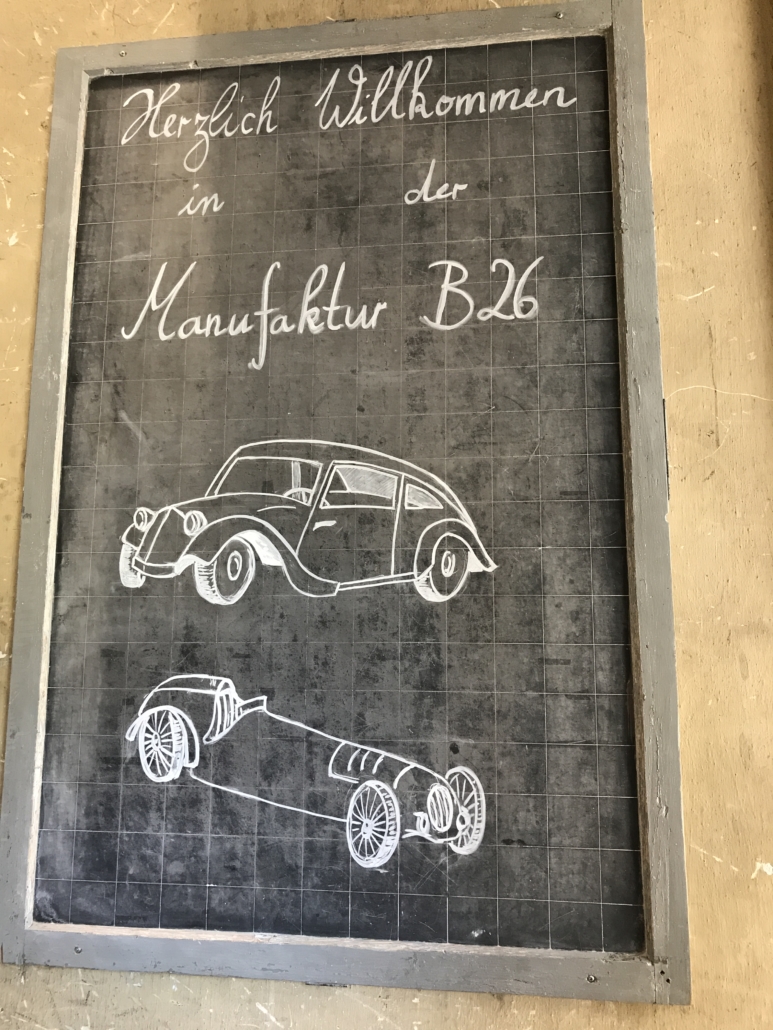 Herzlich Willkommen
in der
Manufaktur B26